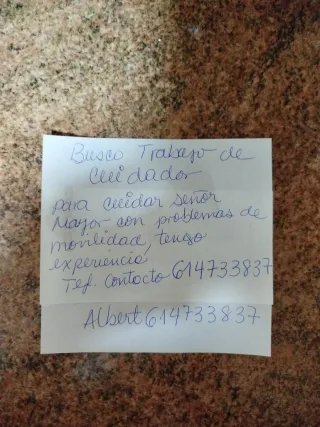 Busco Trabajo de
Cuidador
para cuidar señor
Mayor con problemas de
movilidad, tengo
experiencia,
Tef. Contacto 614733837
Albert 614733837